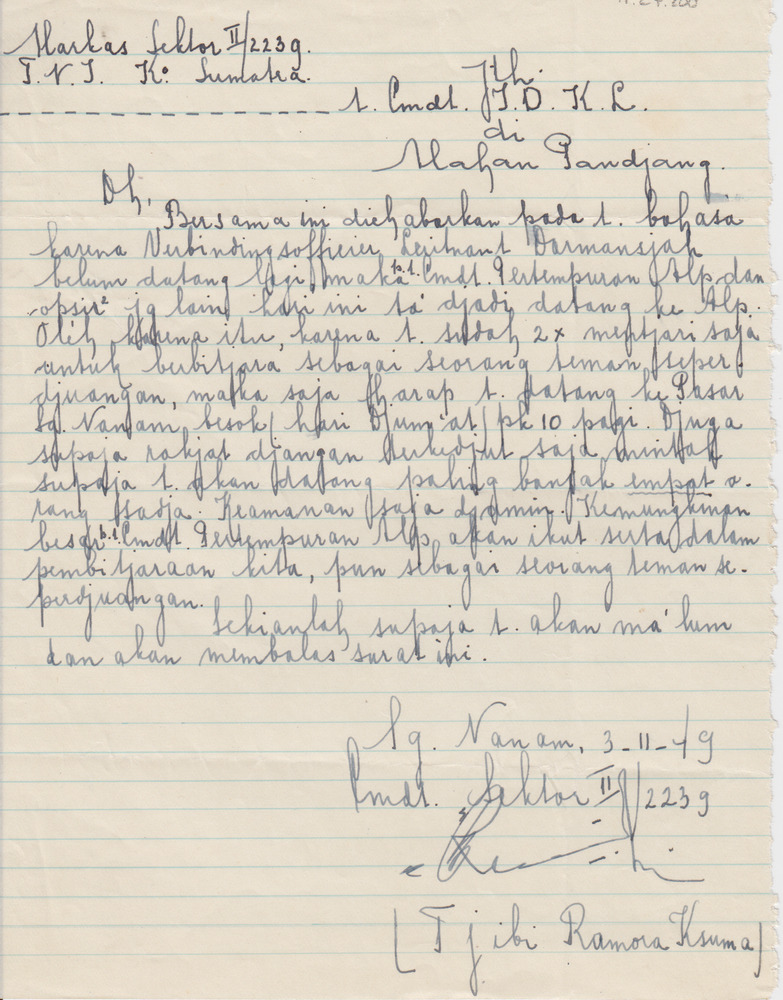 Markas Sektor II/2239.
T.N.I. Ko. Sumatra.
Jth.
t. Cmdt. T.D.K.L.
di
Alahan Pandjang.
Dh,
Bersama ini dichabarkan pada t. bahasa
karena Verbindingsofficier Leijtnant Darmansjah
belum datang lagi, maka p.t. Cmdt. Pertempuran Alp. dan
opsir2 jg lain, hari ini ta' djadi datang ke Alp.
Oleh karena itu, karena t. sudah 2x mentjari saja
untuk berbitjara sebagai seorang teman seper-
djuangan, maka saja harap t. datang ke Pasar
Sg. Nanam besok (hari Djum'at) pk 10 pagi. Djuga
supaja rakjat djangan terkedjut saja mintak
supaja t. akan datang paling banjak empat o-
rang sadja. Keamanan saja djamin. Kemungkinan
besar p.t. Cmdt. Pertempuran Alp. akan ikut serta dalam
pembitjaraan kita, pun sebagai seorang teman se-
perdjuangan.
Sekianlah supaja t. akan ma'lum
dan akan membalas surat ini.
Sg. Nanam, 3-11-49
Cmdt. Sektor II/2239
(Tjibi Ramora Ksuma)